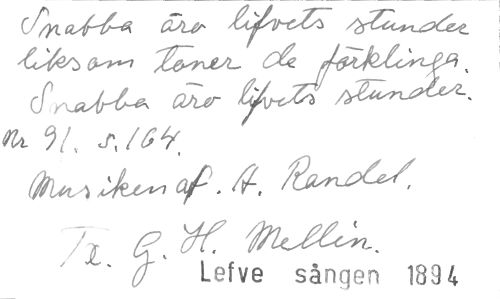 Snabba äro lifvets stunder
liksom toner de förklinga.
Snabba äro lifvets stunder.
Nr 91. s. 164.
Musiken af. A. Randel.
Tx. G. H. Mellin.
Lefve sången 1894